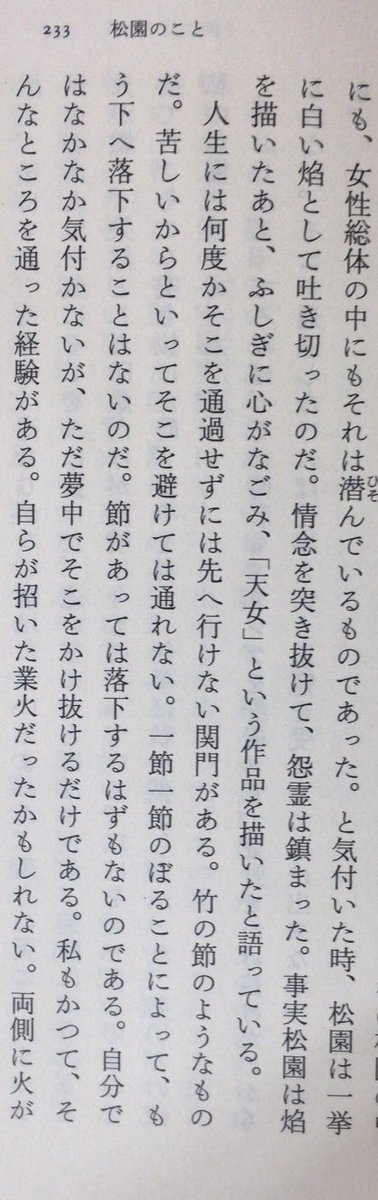 233 松園のこと
にも、女性総体の中にもそれは潜んでいるものであった。と気付いた時、松園は一挙
に白い焰として吐き切ったのだ。情念を突き抜けて、怨霊は鎮まった。事実松園は焰
を描いたあと、ふしぎに心がなごみ、「天女」という作品を描いたと語っている。
人生には何度かそこを通過せずには先へ行けない関門がある。竹の節のようなもの
だ。苦しいからといってそこを避けては通れない。一節一節のぼることによって、も
う下へ落下することはないのだ。節があっては落下するはずもないのである。自分で
はなかなか気付かないが、ただ夢中でそこをかけ抜けるだけである。私もかつて、そ
んなところを通った経験がある。自らが招いた業火だったかもしれない。両側に火が